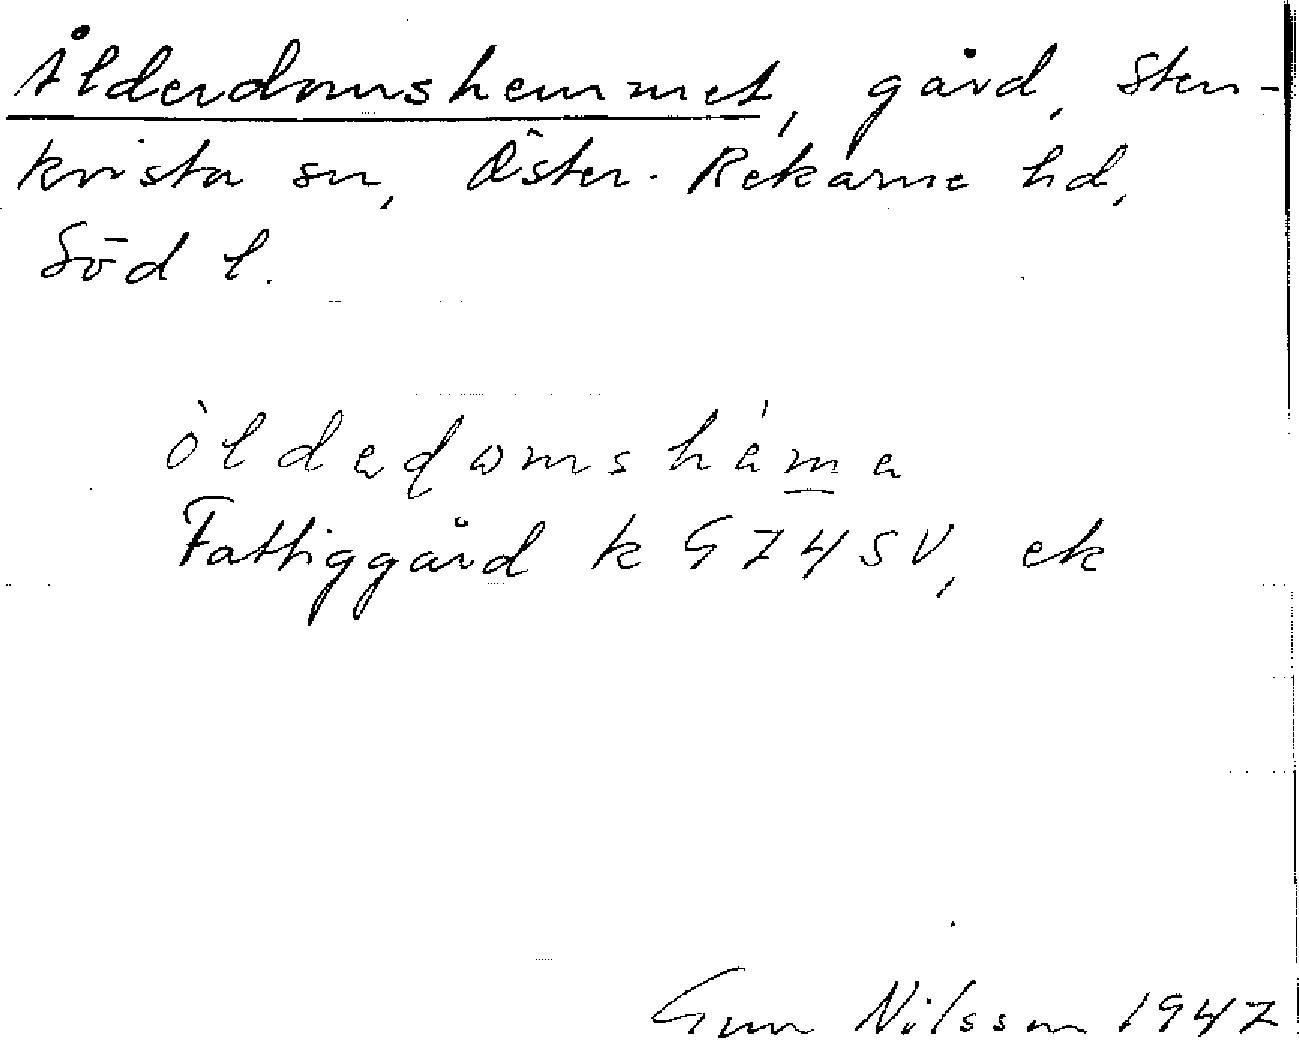 Ålderdomshemmet, gård, Sten-
kvista sn, Öster-Rekarne hd,
Söd l.
òldaḍomsháma
Fattiggård k G74SV, ek
Gun Nilsson 1947